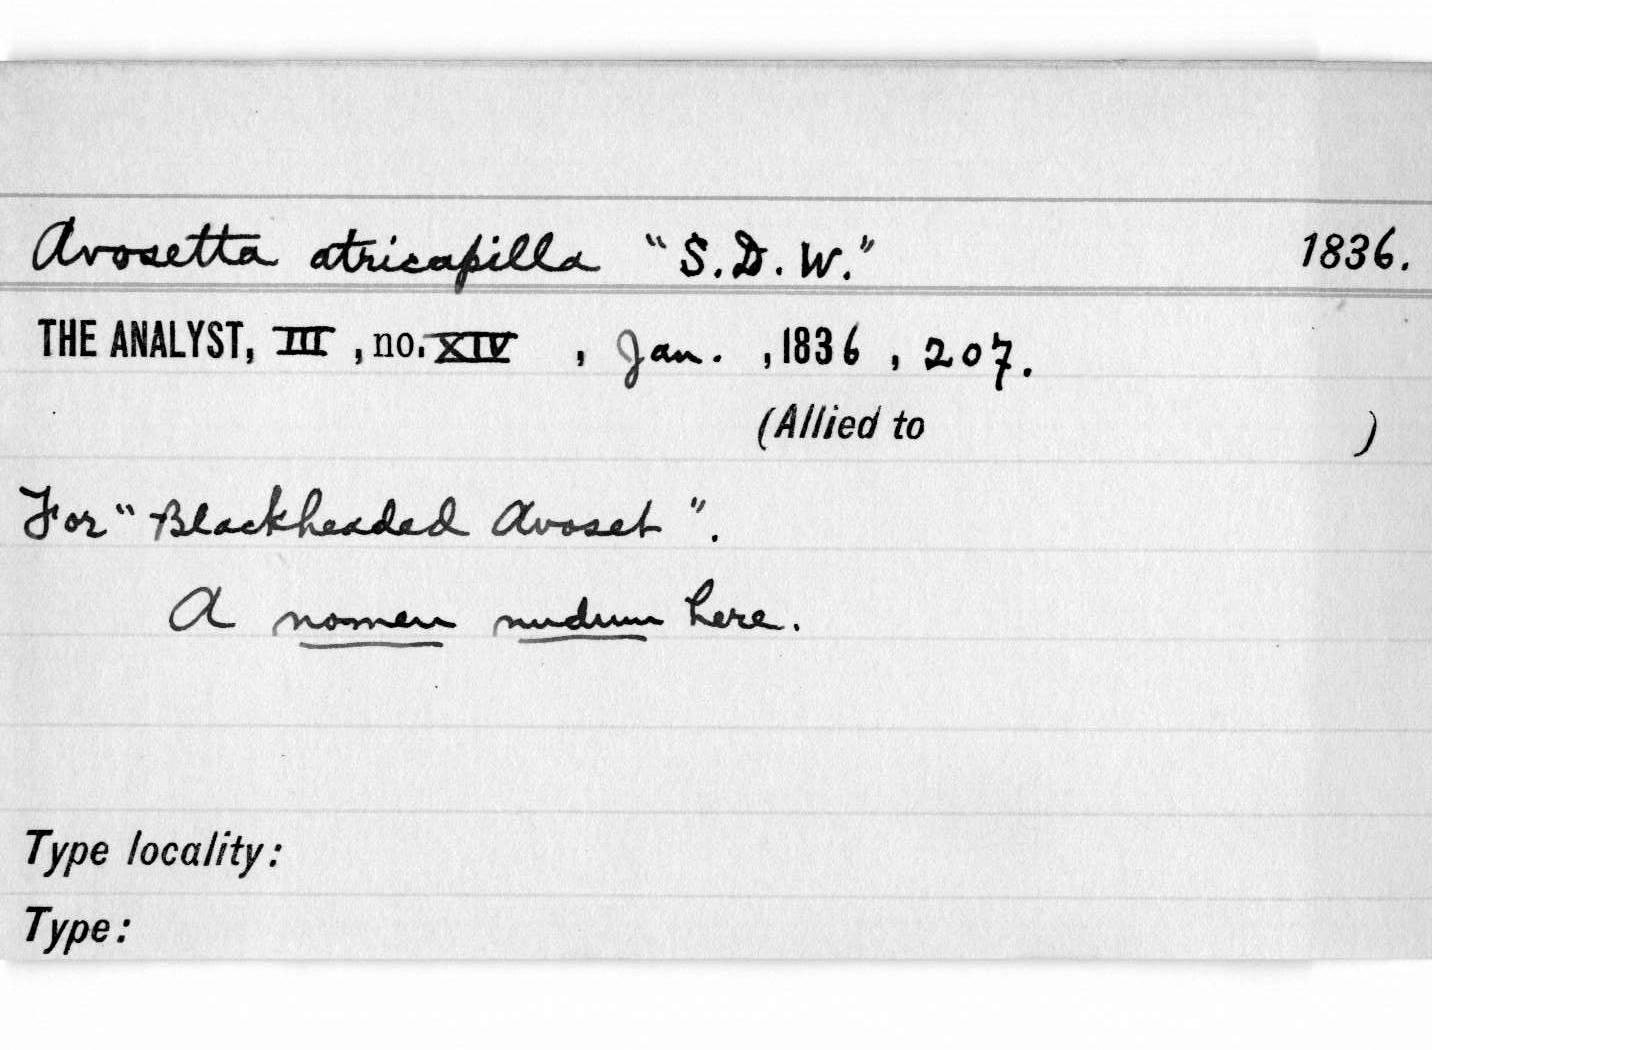 Avosetta atricapilla "S.D.W." 1836.
THE ANALYST, III, no. XIV, Jan., 1836, 207.
(Allied to )
For "Blackheaded Avoset".
A nomen nudum here.
Type locality:
Type: